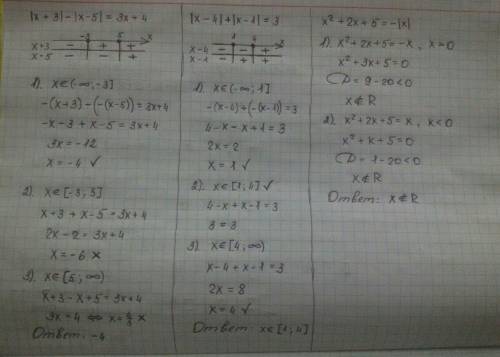 |x+3|-|x-5|=3x+4
-3 5 x
x+3 - + +
x-5 - - +
1) x∈(-∞;-3]
-(x+3)-(-(x-5))=3x+4
-x-3+x-5=3x+4
3x=-12
x=-4 ✓
2) x∈[-3;5]
x+3+x-5=3x+4
2x-2=3x+4
x=-6 ×
3) x∈[5;∞)
x+3-x+5=3x+4
3x=4 ⇔ x=4/3 ×
Ответ: -4
|x-4|+|x-1|=3
1 4 x
x-4 - - +
x-1 - + +
1) x∈(-∞;1]
-(x-4)+(-(x-1))=3
4-x-x+1=3
2x=2
x=1 ✓
2) x∈[1;4] ✓
4-x+x-1=3
3=3
3) x∈[4;∞)
x-4+x-1=3
2x=8
x=4 ✓
Ответ: x∈[1;4]
x²+2x+5=-|x|
1) x²+2x+5=-x, x≥0
x²+3x+5=0
D=9-20<0
x∉R
2) x²+2x+5=x, x<0
x²+x+5=0
D=1-20<0
x∉R
Ответ: x∉R